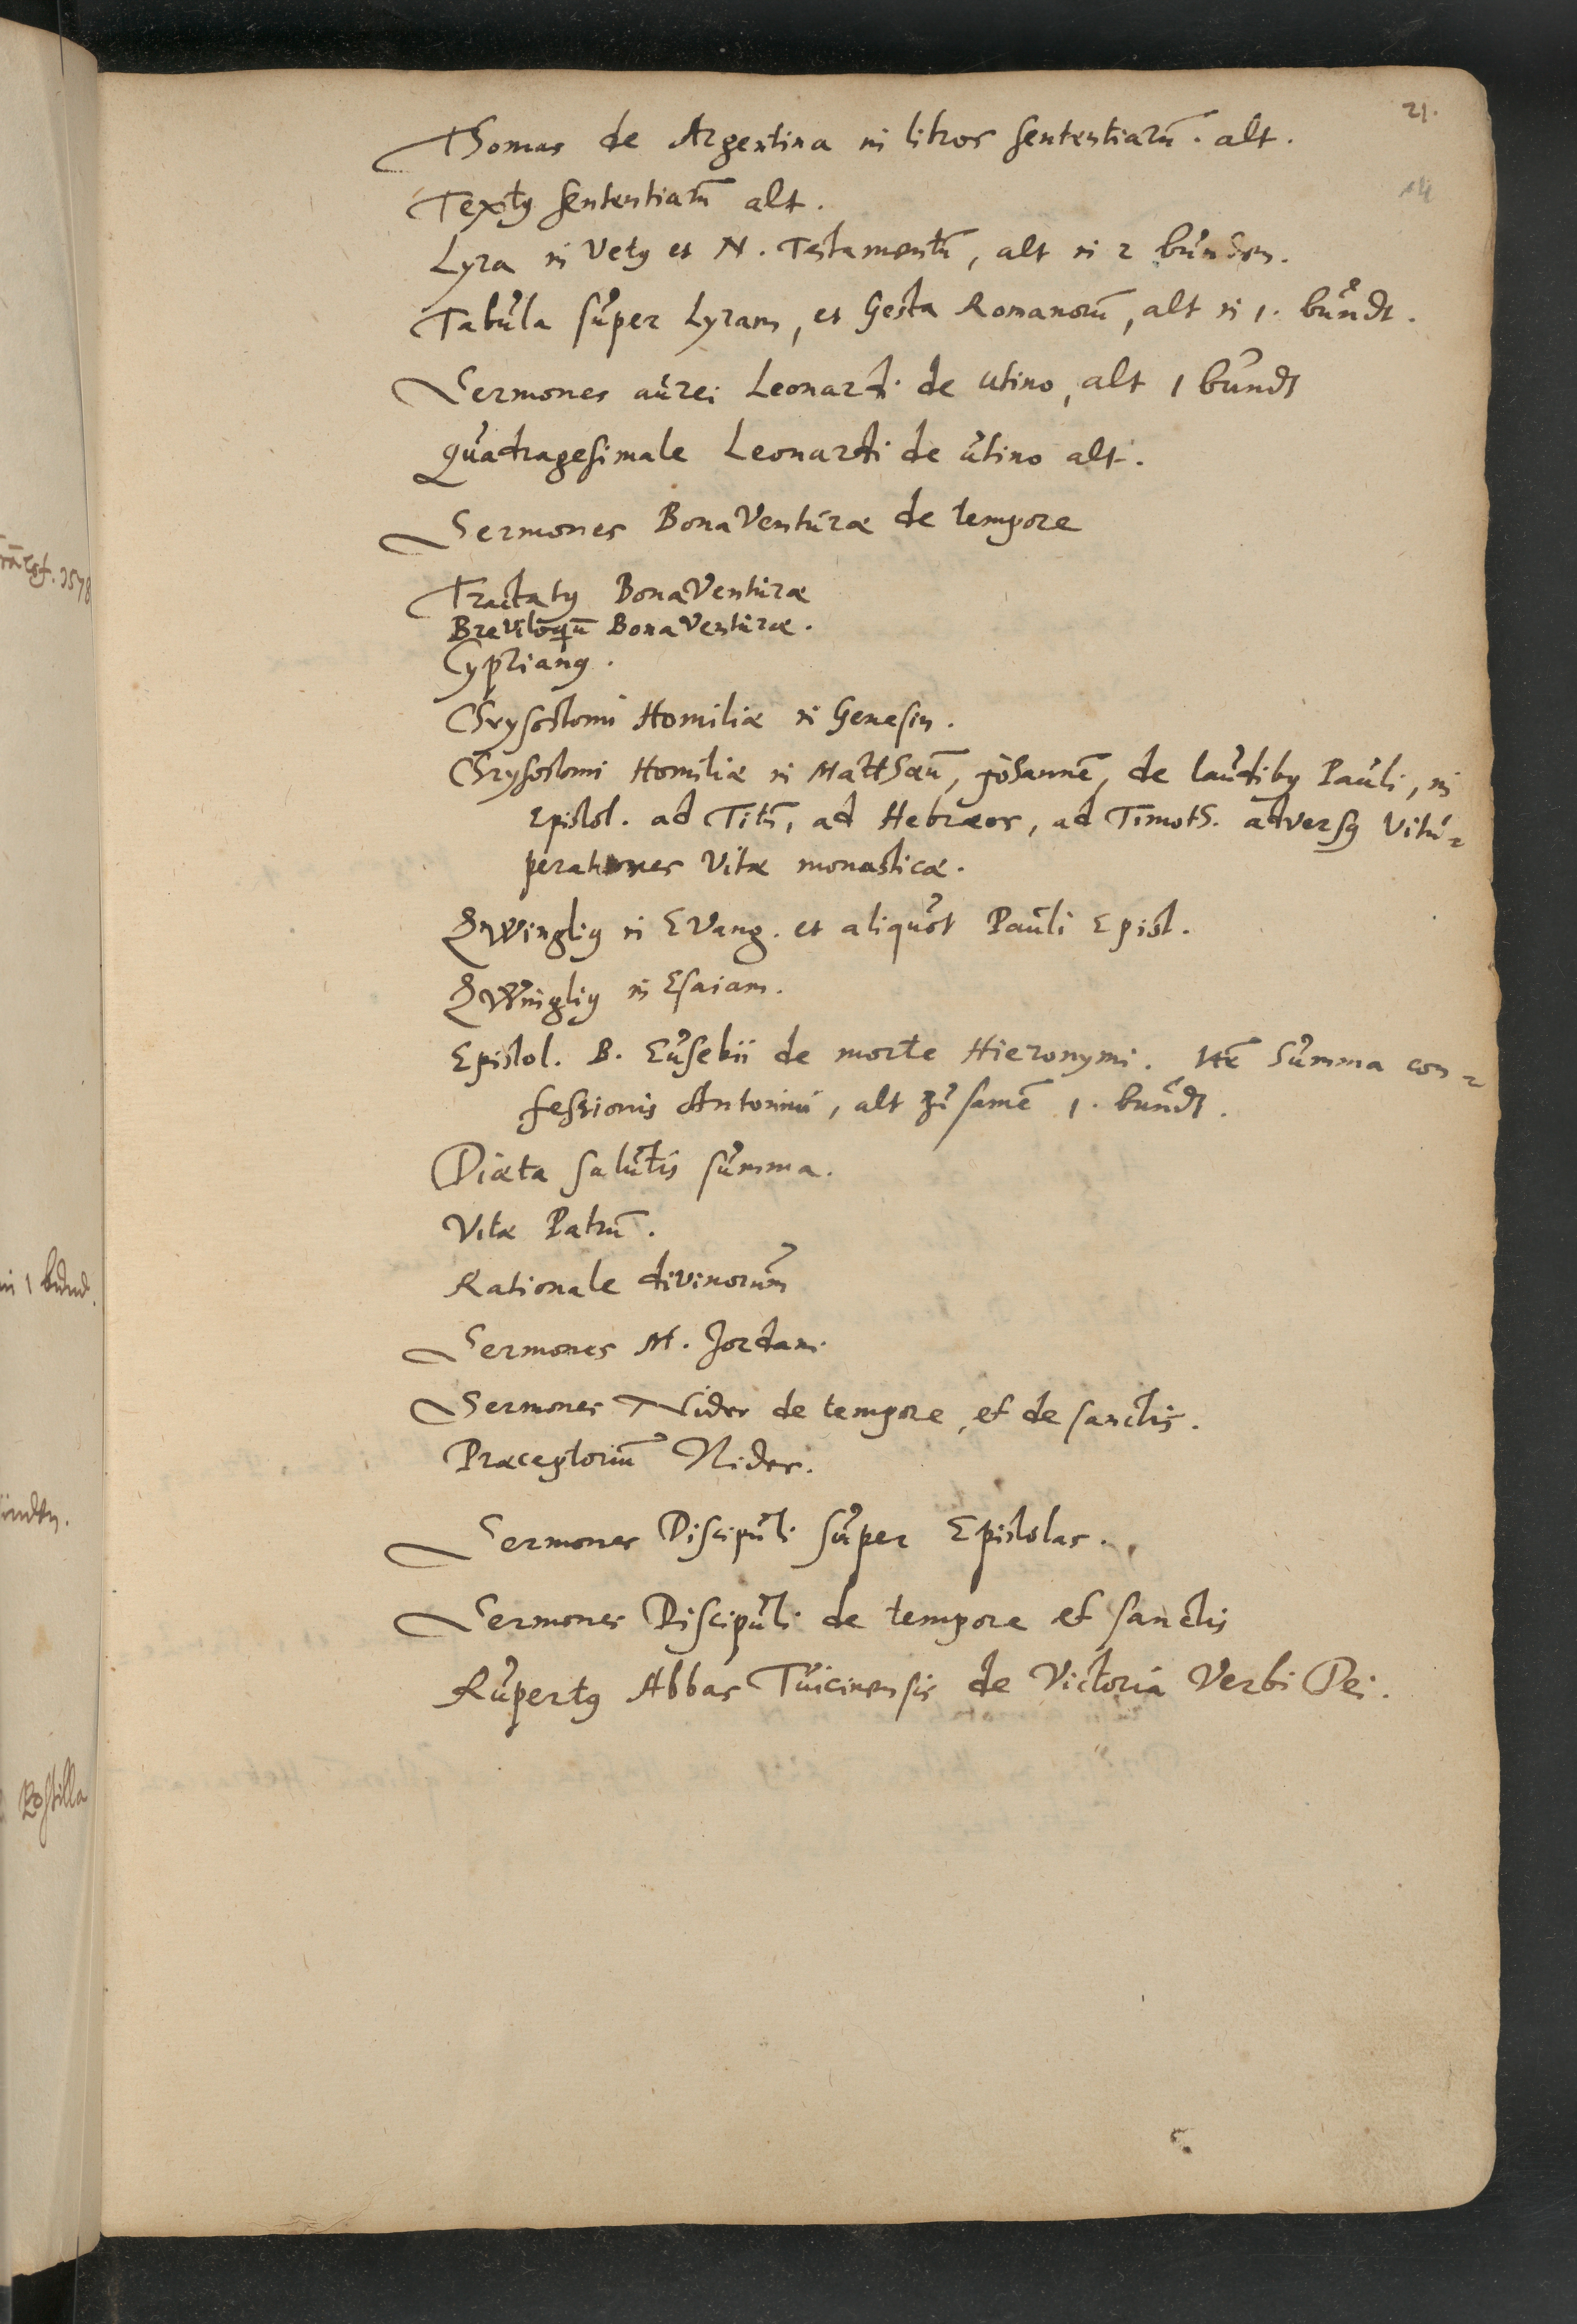 21.
14
Thomas de Argentina in libros sententiarū. alt.
Textꝰ sententiarū alt.
Lyra in Vetꝰ et N. Testamentū, alt in 2 bünden.
Tabula super Lyram, et Gesta Romanorū, alt in 1. bundt.
Sermones aurei Leonardi de Utino, alt 1 bundt
Quadragesimale Leonardi de utino alt.
Sermones BonaVenturæ de tempore
Tractatꝰ BonaVenturæ
Breviloqū BonaVenturæ.
Cyprianꝰ.
Chrysostomi Homiliæ in Genesin.
Chrysostomi Homiliæ in Matthæū, Johannē, de laudibꝰ Pauli, in
Epistol. ad Titū, ad Hebræos, ad Timoth. adversꝰ Vitu-
perationes Vitæ monasticæ.
Zwingliꝰ in Evang. et aliquot Pauli Epist.
Zwingliꝰ in Esaiam.
Epistol. B. Eusebii de morte Hieronymi. Itē Summa con-
fessionis Antonini, alt zusamē 1. bundt.
Diæta salutis summa.
Vitæ Patrū.
Rationale divinorum
Sermones M. Jordani
Sermones Nider de tempore, et de sanctis.
Præceptoriū Nider.
Sermones Discipuli super Epistolas.
Sermones Discipuli de tempore et sanctis
Rupertꝰ Abbas Tuicinensis de Victoria Verbi Dei.
1578
in 1 bund.
Postilla